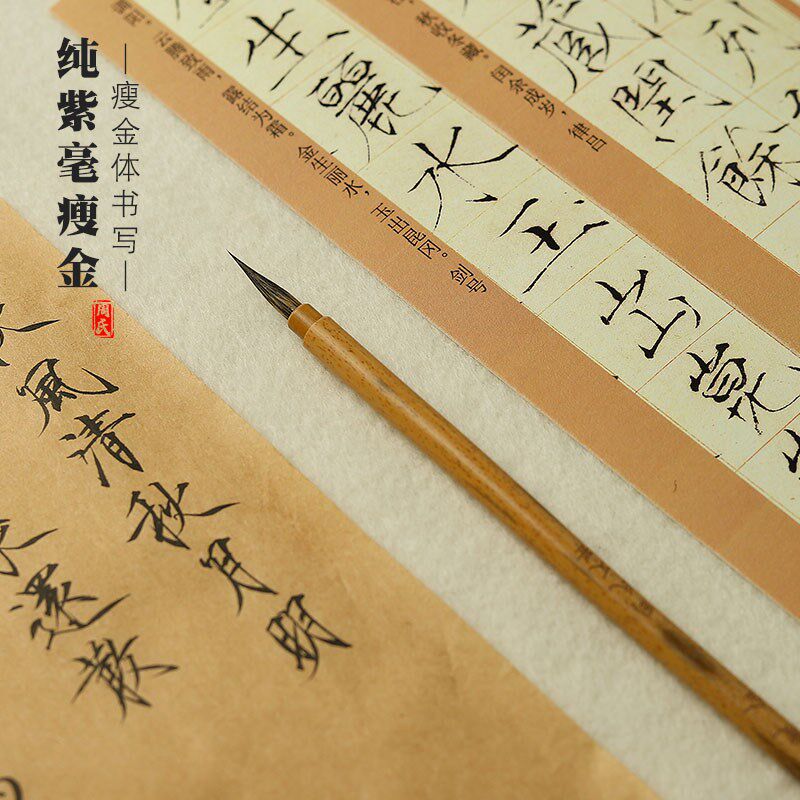 纯紫毫瘦金
瘦金体书写
周氏
云腾致雨，露结为霜。金生丽水，玉出昆冈。剑号
生麗水玉出崑
秋收冬藏。闰余成岁，律吕
藏閏餘
列
風清秋月明
還散